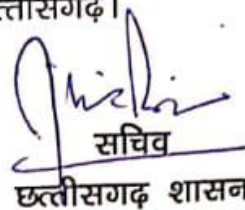 त्तीसगढ़।
सचिव
छत्तीसगढ़ शासन